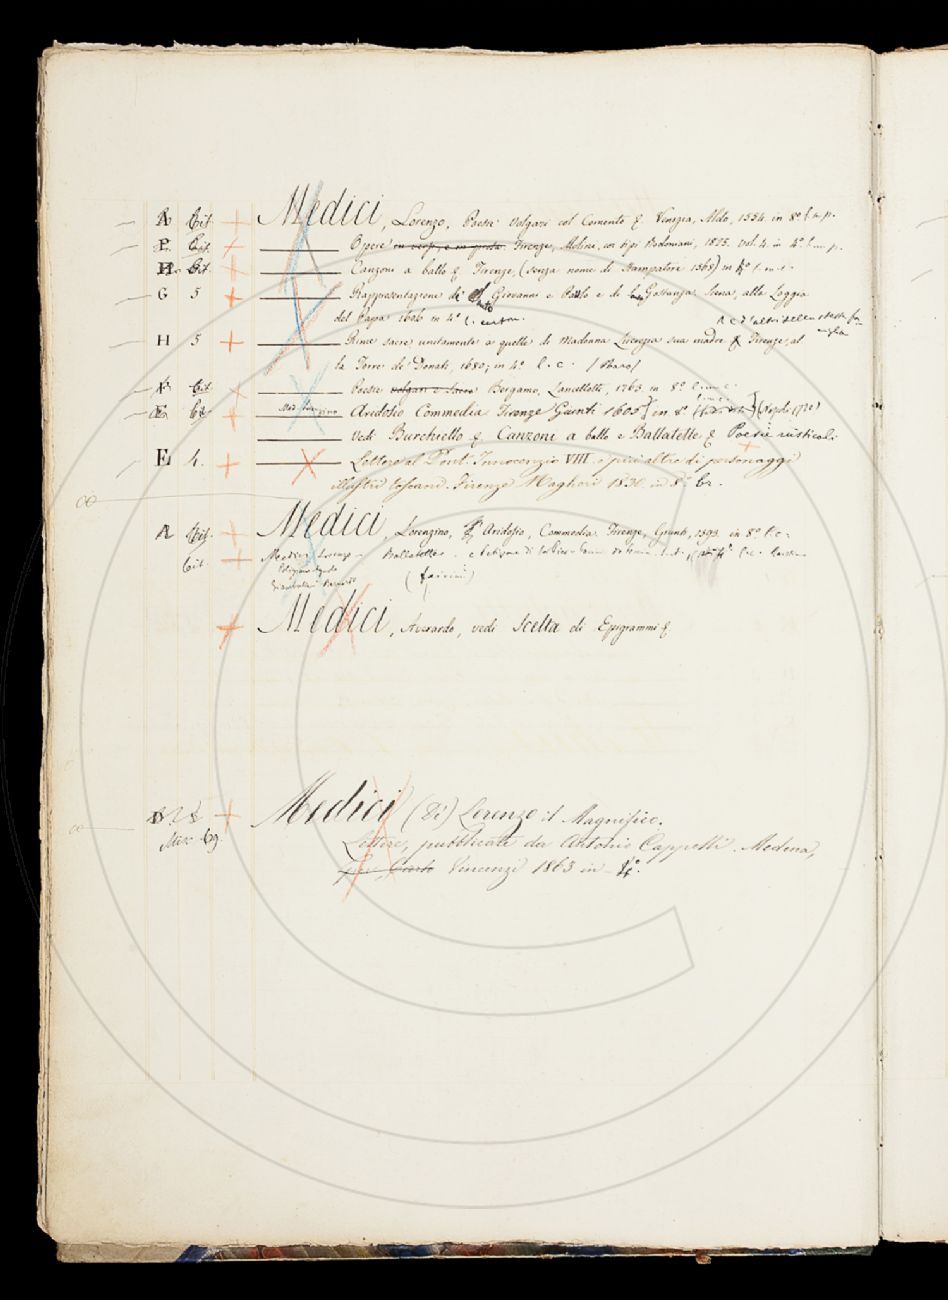 A Cit. + Medici, Lorenzo, Poesie Volgari col Comento & Venezia, Aldo, 1554 in 8° l. m. p.
P. Cit. Opere in versi, e in prosa Firenze, Molini, co' tipi Bodoniani, 1825. vol. 4. in 4° l. m. p.
H Cit. Canzone a ballo & Firenze, (senza nome di Stampatore 1568) in 4° l. m. c.
G 5 + Rappresentazione di Santo Giovanni e Paolo e di Santa Gostanza. Siena, alla Loggia
del Papa 1606 in 4°
e d'altri della stessa famiglia
H 5 + Rime sacre unitamente a quelle di Madonna Lucrezia sua madre & Firenze, al
la Torre de' Donati, 1680; in 4° l. c. (Raro)
Cit. Poesie volgari e Sacre Bergamo, Lancellotti, 1763 in 8° l. m. c.
Cit. + Med. Lorenzino Aridosio Commedia Firenze Giunti 1605 in 8° (Napoli 1720)
Vedi Burchiello & Canzoni a ballo e Ballatette & Poesie rusticali
E 4. + Lettere al Pont. Innocenzio VIII. e più altre di personaggi
illustri toscani. Firenze Magheri 1830 in 8° br.
A Cit. + Medici, Lorenzino, Aridosio, Commedia. Firenze, Giunti, 1593 in 8° l. c.
Cit. + Medici Lorenzo - Ballatette
Poliziano Agnolo
Giambullari Bernardo
+ Medici, Averardo, vedi Scelta di Epigrammi &
+ Medici (De') Lorenzo il Magnifico.
Misc. 69.
Lettere, pubblicate da Antonio Cappelli. Modena,
Carlo Vincenzi 1863 in 4°.